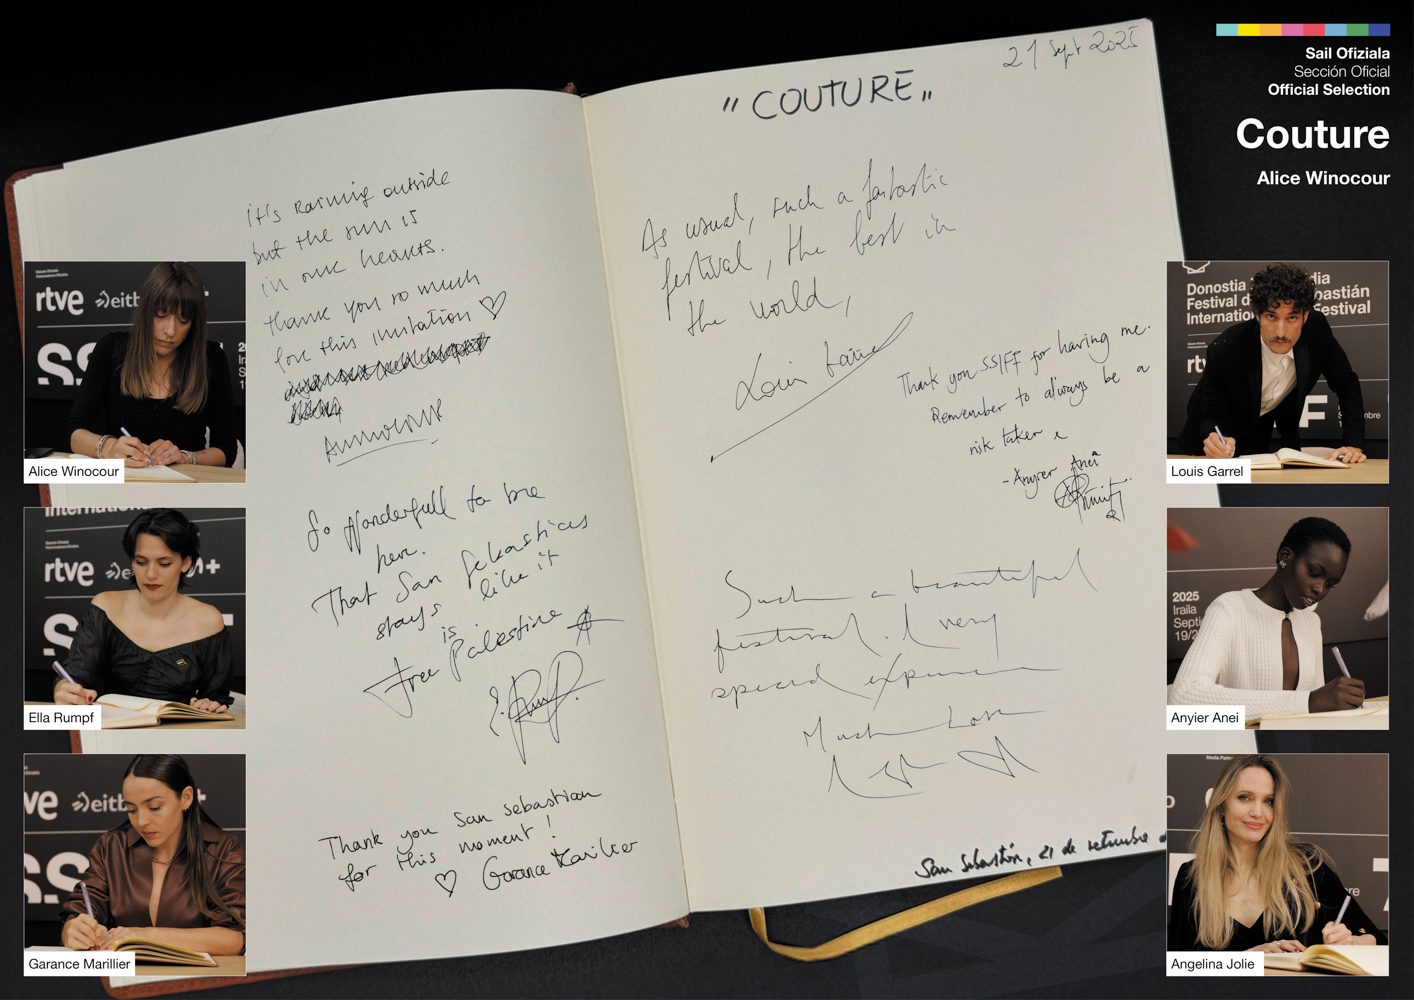 Sail Ofiziala
Sección Oficial
Official Selection
Couture
Alice Winocour
21 Sept 2025
"COUTURE"
it's raining outside
but the sun is
in our hearts.
thank you so much
for this invitation ♡
AWinocour
So Wonderfull to be
here.
That San Sebastian
stays like it
is.
Free Palestine
Thank you San Sebastian
for this moment!
♡ Garance Marillier
As usual, such a fantastic
festival, the best in
the world,
Louis Garrel
Thank you SSIFF for having me.
Remember to always be a
risk taker x
-Anyier Anei
Such a beautiful
festival. A very
special experience
Much Love
San Sebastián, 21 de setiembre
rtve
eitb
SS
Alice Winocour
International
rtve
+
SS
Ella Rumpf
ve
eitb
SS
Garance Marillier
Donostia
Festival d
Internation
dia
bastián
Festival
rtv
F
Louis Garrel
2025
Iraila
Septi
19/2
Anyier Anei
Media Partn
Angelina Jolie